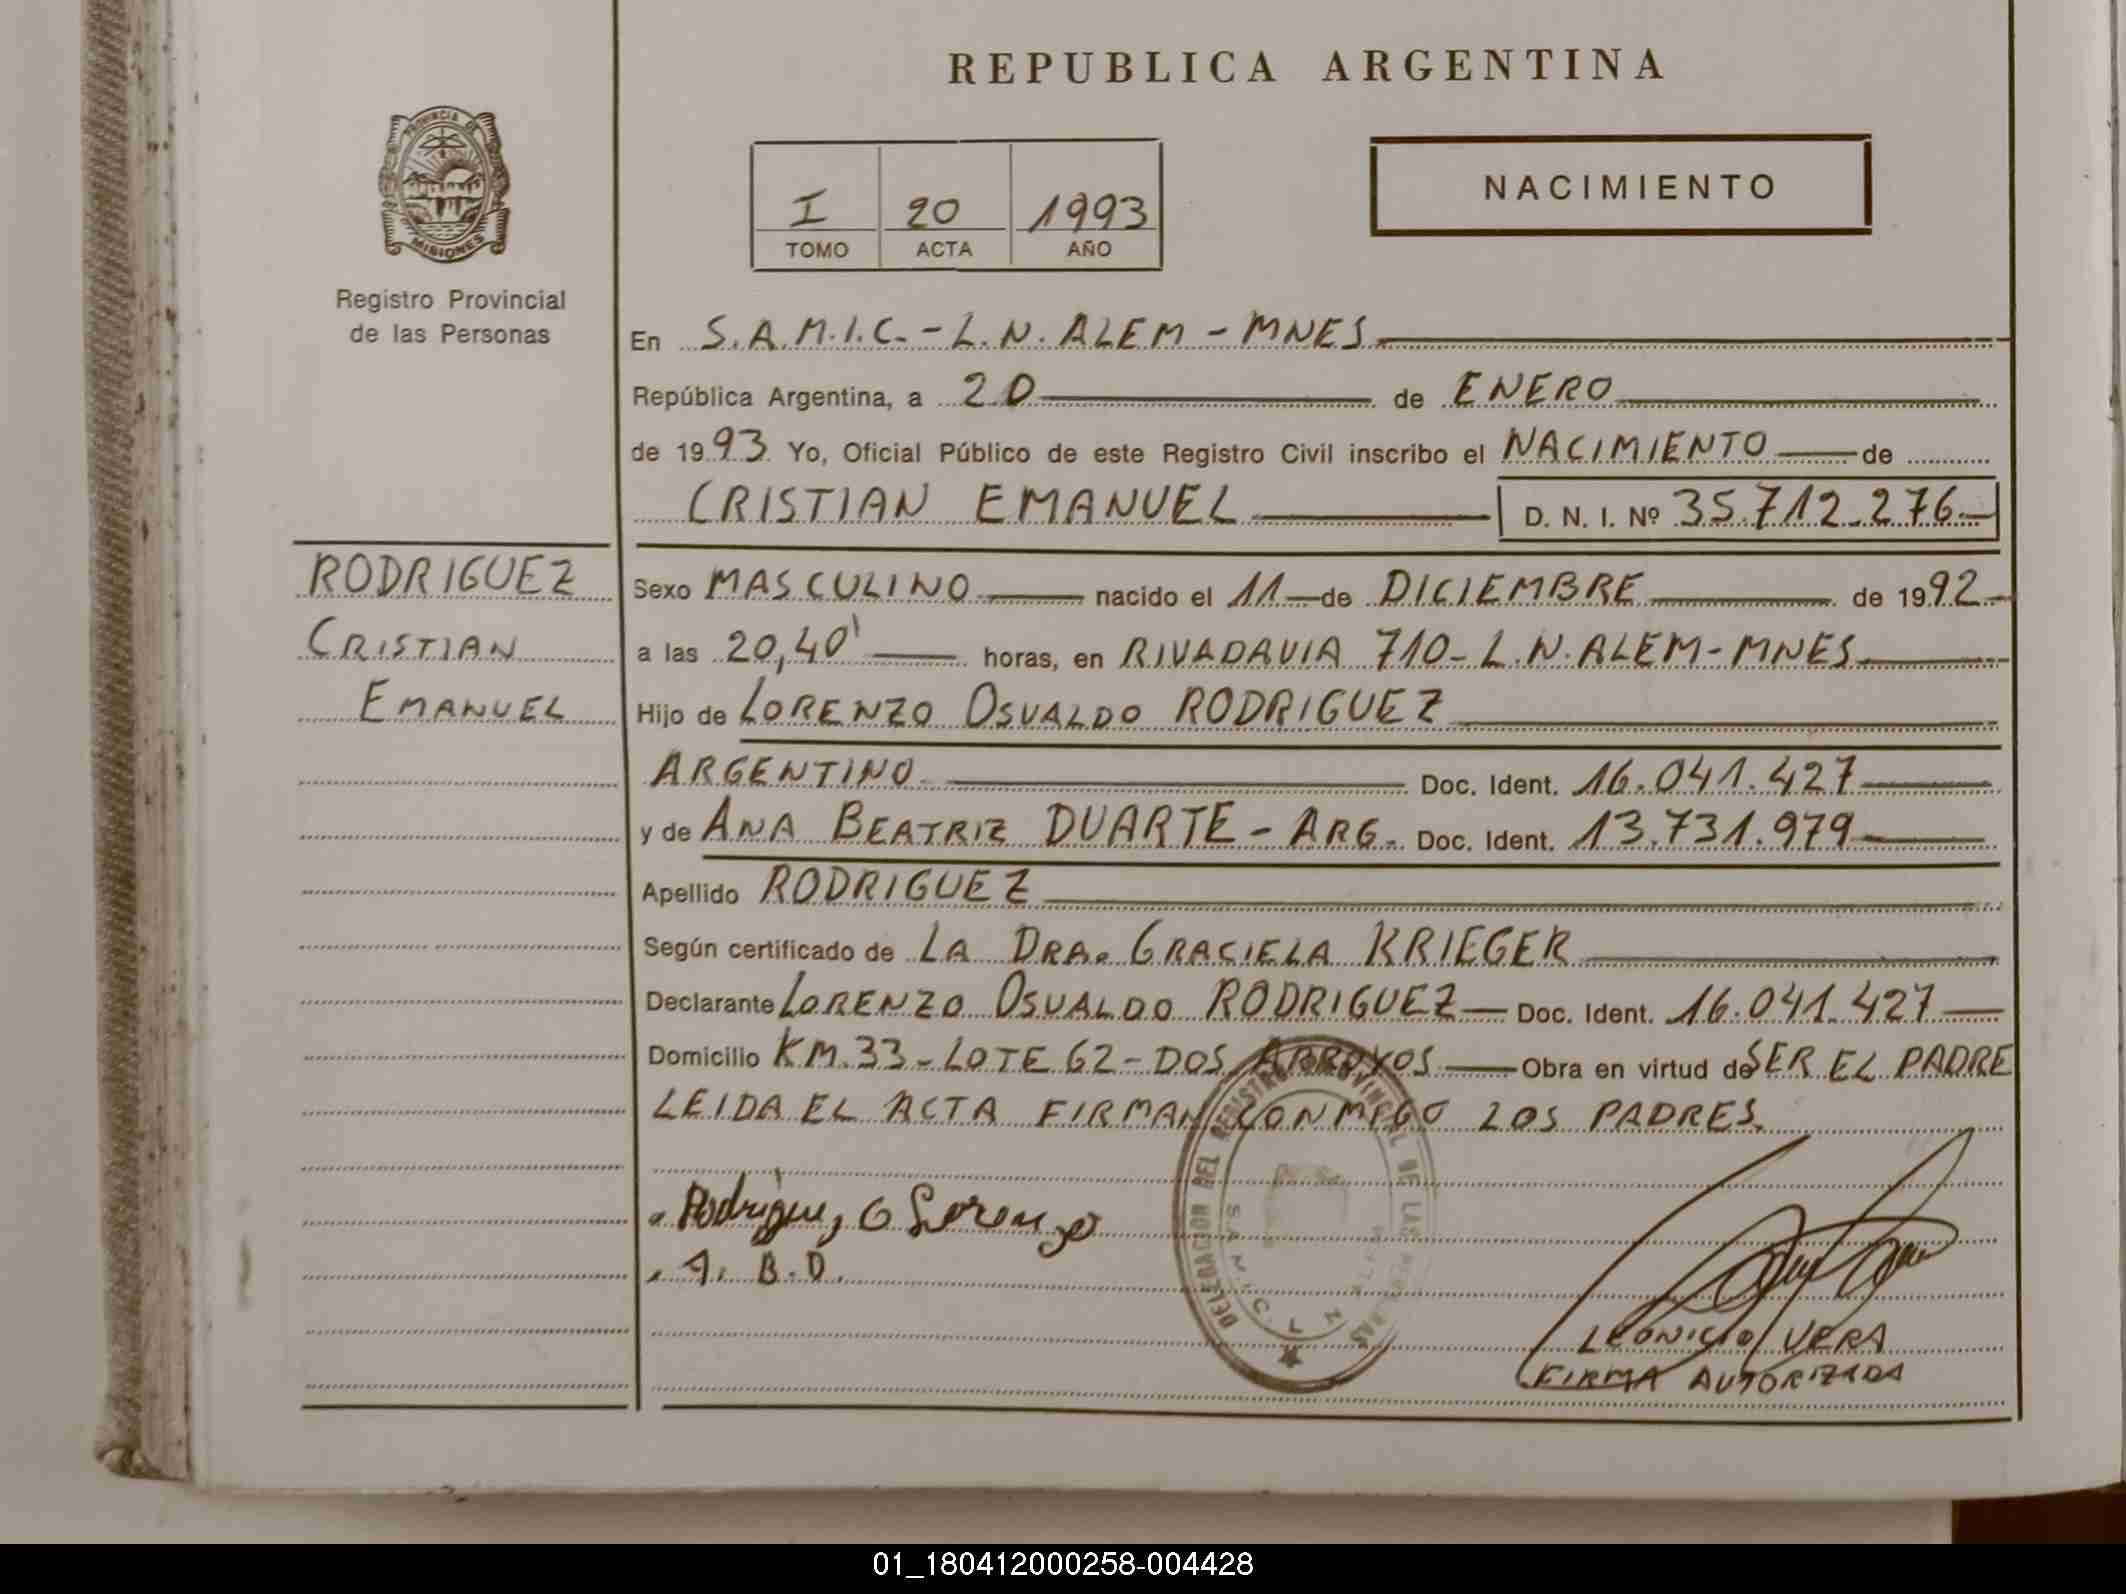 REPUBLICA ARGENTINA
PROVINCIA DE
MISIONES
Registro Provincial
de las Personas
I 20 1993
TOMO ACTA AÑO
NACIMIENTO
En S.A.M.I.C. - L.N. ALEM - MNES
República Argentina, a 20 de ENERO
de 1993 Yo, Oficial Público de este Registro Civil inscribo el NACIMIENTO de
CRISTIAN EMANUEL D. N. I. Nº 35.712.276
RODRIGUEZ
CRISTIAN
EMANUEL
Sexo MASCULINO nacido el 11 de DICIEMBRE de 1992
a las 20,40' horas, en RIVADAVIA 710 - L.N. ALEM - MNES
Hijo de LORENZO OSVALDO RODRIGUEZ
ARGENTINO Doc. Ident. 16.041.427
y de ANA BEATRIZ DUARTE - ARG. Doc. Ident. 13.731.979
Apellido RODRIGUEZ
Según certificado de LA DRA. GRACIELA KRIEGER
Declarante LORENZO OSVALDO RODRIGUEZ Doc. Ident. 16.041.427
Domicilio KM. 33 - LOTE 62 - DOS ARROYOS Obra en virtud de SER EL PADRE
LEIDA EL ACTA FIRMAN CONMIGO LOS PADRES.
Rodriguez O Lorenzo
A. B. D.
DELEGACION DEL REGISTRO PROVINCIAL DE LAS PERSONAS
LEONICIO VERA
FIRMA AUTORIZADA
01_180412000258-004428